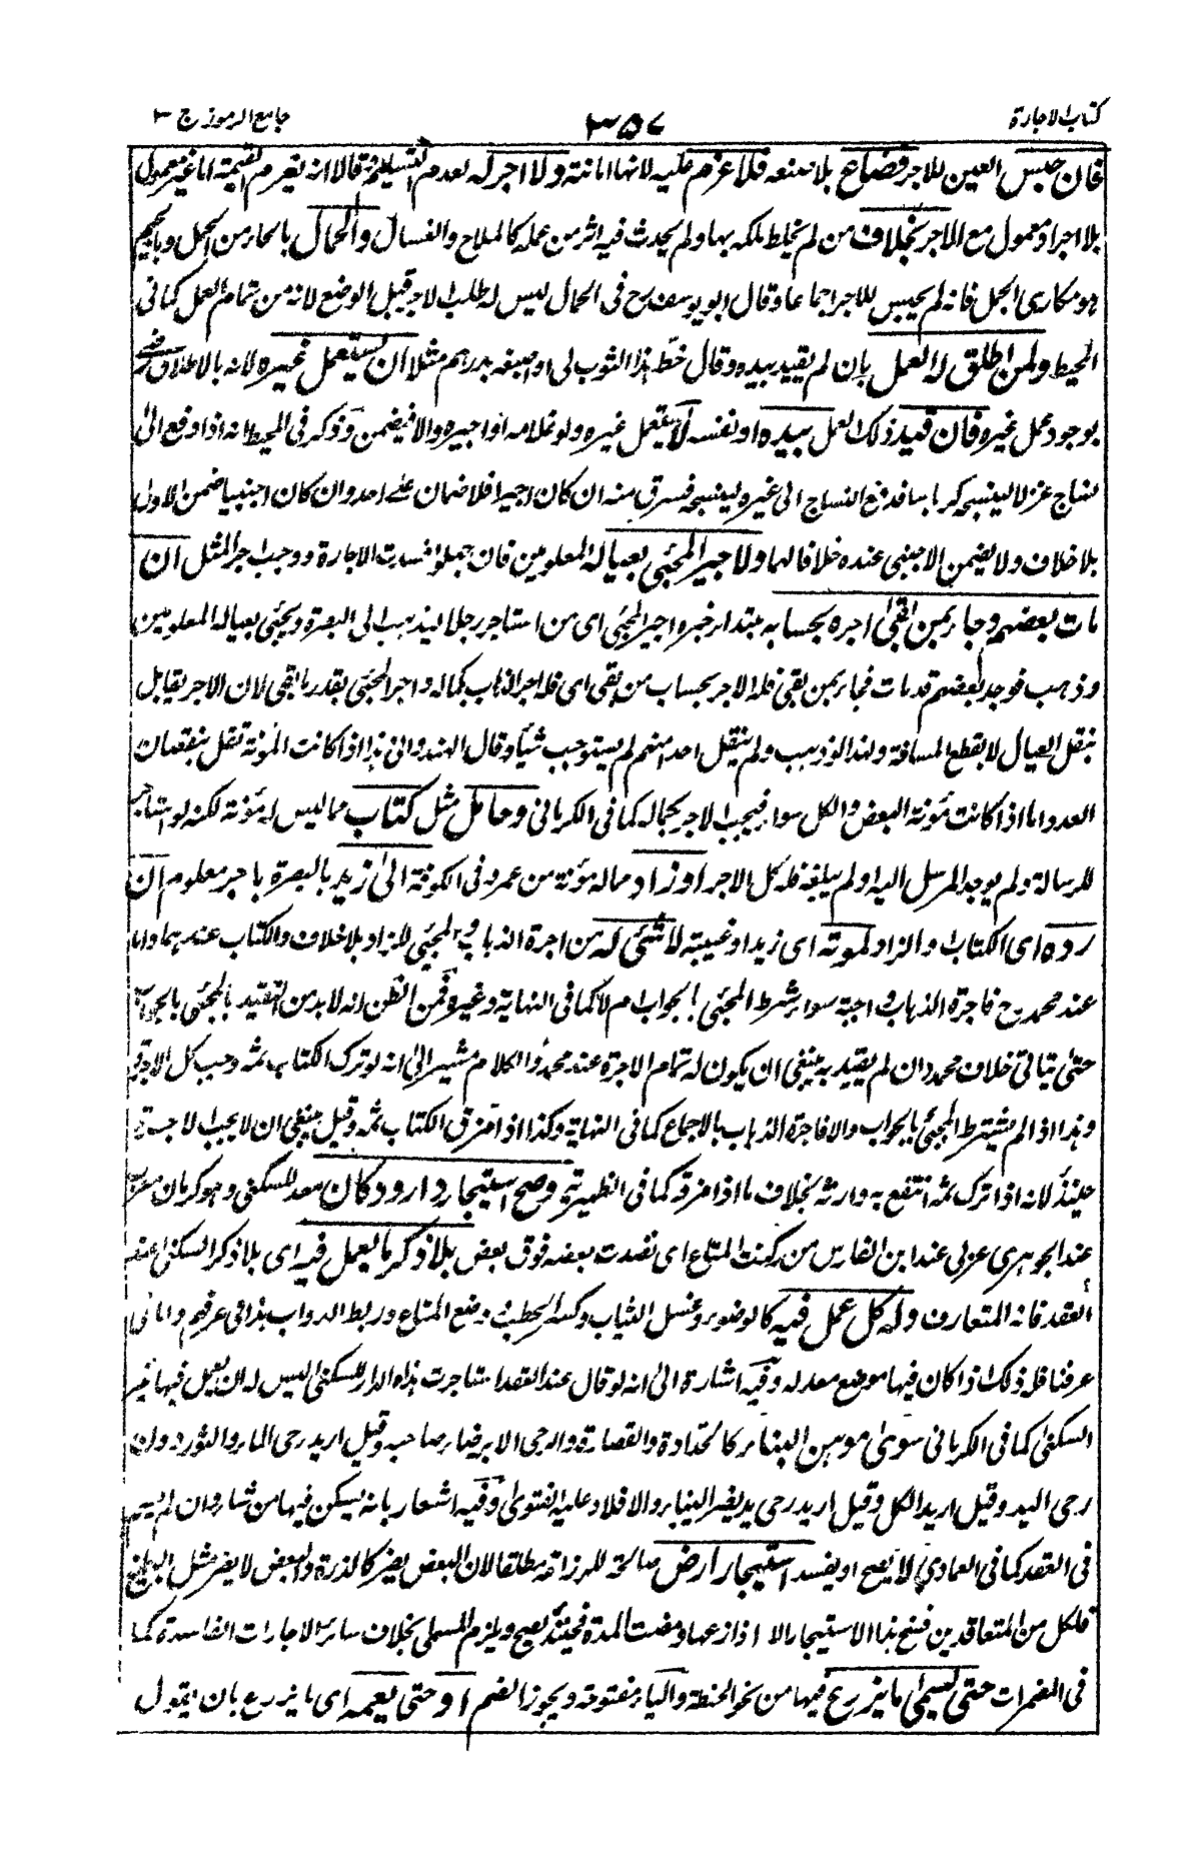 كتاب الاجارة
٣٥٧
جامع الرموز ج ٣
فان حبس العين للاجر فضاع بلا صنعه فلا غرم عليه لانها امانة ولا اجر له لعدم التسليم وقالا انه يغرم القيمة اما غير معمول
بلا اجر او معمول مع الاجر بخلاف من لم يخلط ملكه بها ولم يحدث فيه اثر من عمله كالملاح والغسال والحمال بالحاء من الحمل وبالجيم
وهو مكارى الجمل فانه لم يحبس للاجر اجماعا وقال ابو يوسف رح فى الحمال ليس له طلب الاجر قبل الوضع لانه من تمام العمل كما فى
المحيط ولمن اطلق له العمل بان لم يقيد بيده وقال خط هذا الثوب لى او اصبغه بدرهم مثلا ان يستعمل غيره لانه بالاطلاق رضى
بوجود عمل غيره فان قيد ذلك العمل بيده او نفسه لا يستعمل غيره ولو غلامه او اجيره والا فيضمن وذكر فى المحيط انه اذا دفع الى
نساج غزلا لينسجه كرباسا فدفع النساج الى غيره لينسجه فسرق منه ان كان اجيرا فلا ضمان على احد وان كان اجنبيا ضمن الاول
بلا خلاف ولا يضمن الاجنبى عنده خلافا لهما ولاجير المجئ بعياله المعلومين فان جهلوا فسدت الاجارة ووجب اجر المثل ان
مات بعضهم وجاء بمن بقى اجره بحسابه مبتدأ خبره اجير المجئ اى من استاجر رجلا ليذهب الى البصرة ويجئ بعياله المعلومين
وذهب فوجد بعضهم قد مات فجاء بمن بقى فله الاجر بحساب من بقى اى فله اجر الذهاب بكماله واجر المجئ بقدر ما بقى لان الاجر يقابل
بنقل العيال لا بقطع المسافة ولهذا لو ذهب ولم ينقل احدا منهم لم يستوجب شيئا وقال الهندوانى هذا اذا كانت المؤنة تقل بنقصان
العدد واما اذا كانت مؤنة البعض والكل سواء فيجب الاجر بكماله كما فى الكرمانى وحامل مثل كتاب مما ليس له مؤنة لكنه لو استاجر
للرسالة ولم يوجد المرسل اليه او لم يبلغه فله كل الاجر او زاد مما له مؤنة من عمرو فى الكوفة الى زيد بالبصرة باجر معلوم ان
رده اى الكتاب والزاد لموته اى زيد او غيبته لا شئ له من اجرة الذهاب والمجئ للزاد بلا خلاف والكتاب عندهما واما
عند محمد رح فاجرة الذهاب واجبة سواء شرط المجئ بالجواب ام لا كما فى النهاية وغيره فمن الظن انه لا بد من التقييد بالمجئ بالجواب
حتى يتأتى خلاف محمد وان لم يقيد به ينبغى ان يكون له تمام الاجرة عند محمد والكلام مشير الى انه لو ترك الكتاب ثمه وجب كل الاجرة
وهذا اذا لم يشترط المجئ بالجواب والا فاجرة الذهاب بالاجماع كما فى النهاية وكذا اذا مزق الكتاب ثمه وقيل ينبغى ان لا يجب الاجرة
حينئذ لانه اذا ترك ثمه انتفع به وارثه بخلاف ما اذا مزقه كما فى الظهيرية وصح استيجار دار ودكان معد للسكنى وهو كرمان معرب
عند الجوهرى عربى عند ابن الفارس من ركنت المتاع اى نضدت بعضه فوق بعض بلا ذكر ما يعمل فيه اى بلا ذكر السكنى عند
العقد فانه المتعارف وله كل عمل فيه كالوضوء وغسل الثياب وكسر الحطب ووضع المتاع وربط الدواب بذا فى عرفهم واما فى
عرفنا فله ذلك اذا كان فيها موضع معد له وفيه اشارة الى انه لو قال عند العقد استاجرت هذه الدار للسكنى ليس له ان يعمل فيها غير
السكنى كما فى الكرمانى سوى موهن البناء كالحدادة والقصارة والرحى الا برضاء صاحبه وقيل اريد رحى الماء والثور دون
رحى اليد وقيل اريد الكل وقيل اريد رحى يد يضر البناء والا فلا وعليه الفتوى وفيه اشعار بانه يسكن فيها من شاء وان لم يبين
فى العقد كما فى العمادى لا يصح او يفسد استيجار ارض صالحة للزراعة مطلقا لان البعض يضر كالذرة والبعض لا يضر مثل البطيخ
فلكل من المتعاقدين فسخ هذا الاستيجار الا اذا زرعها ومضت المدة فحينئذ يصح ويلزم المسمى بخلاف سائر الاجارات الفاسدة كما
فى المضمرات حتى يسمى ما يزرع فيها من نحو الحنطة والياء مفتوحة ويجوز الضم او حتى يعمه اى ما يزرع بان يقول